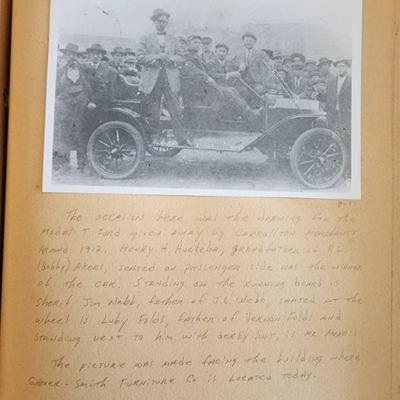 8-93
The occasion here was the drawing for the
Model T Ford given away by Carrollton Merchants
around 1912. Henry H. Huckeba, grandfather of
(Bobby) Akers, seated on passenger side was the winner
of the car. Standing on the running board is
Sherif Jim Webb, father of J.L. Webb, seated at the
wheel is Luby Folds, father of Vernon Folds and
standing next to him with derby hat, is Mr
The picture was made facing the building where
- Smith Furniture Co is located today.